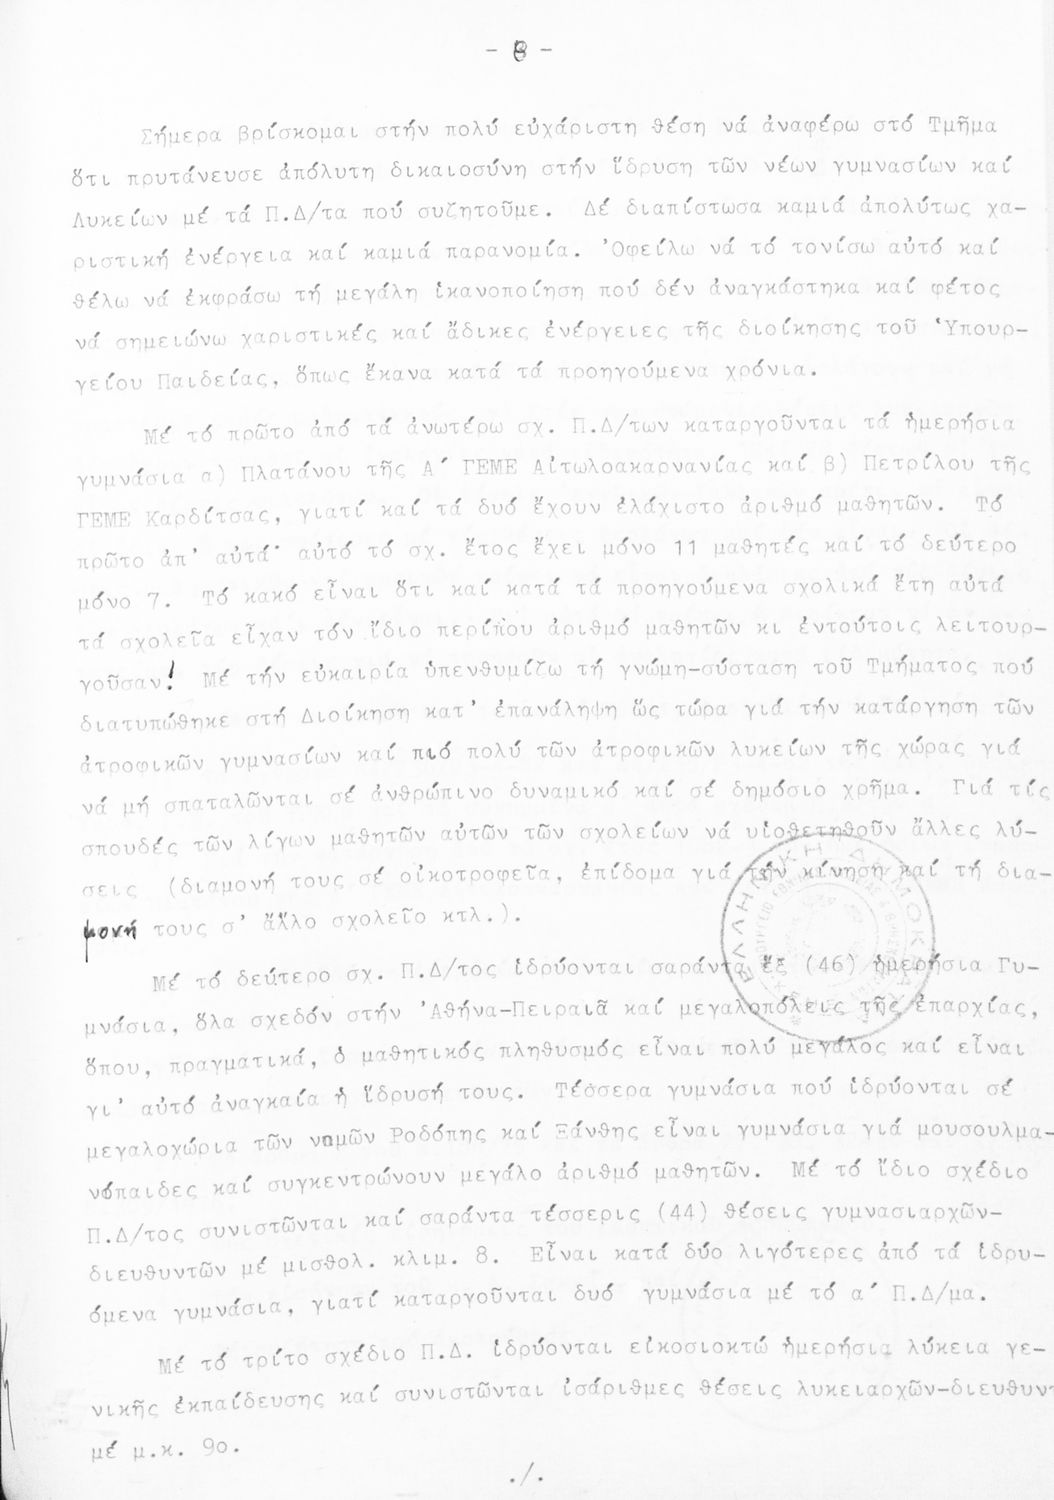 - 8 -
Σήμερα βρίσκομαι στήν πολύ εὐχάριστη θέση νά ἀναφέρω στό Τμῆμα
ὅτι πρυτάνευσε ἀπόλυτη δικαιοσύνη στήν ἵδρυση τῶν νέων γυμνασίων καί
Λυκείων μέ τά Π.Δ/τα πού συζητοῦμε. Δέ διαπίστωσα καμιά ἀπολύτως χα-
ριστική ἐνέργεια καί καμιά παρανομία. Ὀφείλω νά τό τονίσω αὐτό καί
θέλω νά ἐκφράσω τή μεγάλη ἱκανοποίηση πού δέν ἀναγκάστηκα καί φέτος
νά σημειώνω χαριστικές καί ἄδικες ἐνέργειες τῆς διοίκησης τοῦ Ὑπουρ-
γείου Παιδείας, ὅπως ἔκανα κατά τά προηγούμενα χρόνια.
Μέ τό πρῶτο ἀπό τά ἀνωτέρω σχ. Π.Δ/των καταργοῦνται τά ἡμερήσια
γυμνάσια α) Πλατάνου τῆς Α΄ ΓΕΜΕ Αἰτωλοακαρνανίας καί β) Πετρίλου τῆς
ΓΕΜΕ Καρδίτσας, γιατί καί τά δυό ἔχουν ἐλάχιστο ἀριθμό μαθητῶν. Τό
πρῶτο ἀπ' αὐτά αὐτό τό σχ. ἔτος ἔχει μόνο 11 μαθητές καί τό δεύτερο
μόνο 7. Τό κακό εἶναι ὅτι καί κατά τά προηγούμενα σχολικά ἔτη αὐτά
τά σχολεῖα εἶχαν τόν ἴδιο περίπου ἀριθμό μαθητῶν κι ἐντούτοις λειτουρ-
γοῦσαν! Μέ τήν εὐκαιρία ὑπενθυμίζω τή γνώμη-σύσταση τοῦ Τμήματος πού
διατυπώθηκε στή Διοίκηση κατ' ἐπανάληψη ὥς τώρα γιά τήν κατάργηση τῶν
ἀτροφικῶν γυμνασίων καί πιό πολύ τῶν ἀτροφικῶν λυκείων τῆς χώρας γιά
νά μή σπαταλῶνται σέ ἀνθρώπινο δυναμικό καί σέ δημόσιο χρῆμα. Γιά τίς
σπουδές τῶν λίγων μαθητῶν αὐτῶν τῶν σχολείων νά υἱοθετηθοῦν ἄλλες λύ-
σεις (διαμονή τους σέ οἰκοτροφεῖα, ἐπίδομα γιά τήν κίνηση καί τή δια-
μονή τους σ' ἄλλο σχολεῖο κτλ.).
Μέ τό δεύτερο σχ. Π.Δ/τος ἱδρύονται σαράντα ἕξ (46) ἡμερήσια Γυ-
μνάσια, ὅλα σχεδόν στήν Ἀθήνα-Πειραιᾶ καί μεγαλοπόλεις τῆς ἐπαρχίας,
ὅπου, πραγματικά, ὁ μαθητικός πληθυσμός εἶναι πολύ μεγάλος καί εἶναι
γι' αὐτό ἀναγκαία ἡ ἵδρυσή τους. Τέσσερα γυμνάσια πού ἱδρύονται σέ
μεγαλοχώρια τῶν νομῶν Ροδόπης καί Ξάνθης εἶναι γυμνάσια γιά μουσουλμα-
νόπαιδες καί συγκεντρώνουν μεγάλο ἀριθμό μαθητῶν. Μέ τό ἴδιο σχέδιο
Π.Δ/τος συνιστῶνται καί σαράντα τέσσερις (44) θέσεις γυμνασιαρχῶν-
διευθυντῶν μέ μισθολ. κλιμ. 8. Εἶναι κατά δύο λιγότερες ἀπό τά ἱδρυ-
όμενα γυμνάσια, γιατί καταργοῦνται δυό γυμνάσια μέ τό α΄ Π.Δ/μα.
Μέ τό τρίτο σχέδιο Π.Δ. ἱδρύονται εἰκοσιοκτώ ἡμερήσια λύκεια γε-
νικῆς ἐκπαίδευσης καί συνιστῶνται ἰσάριθμες θέσεις λυκειαρχῶν-διευθυντ
μέ μ.κ. 9ο.
./.